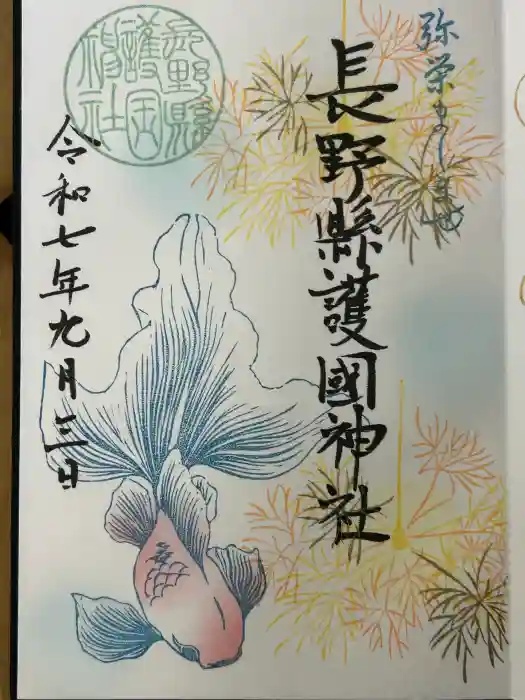 弥栄ましませ
長野縣護國神社
長野縣護国神社
令和七年九月三日